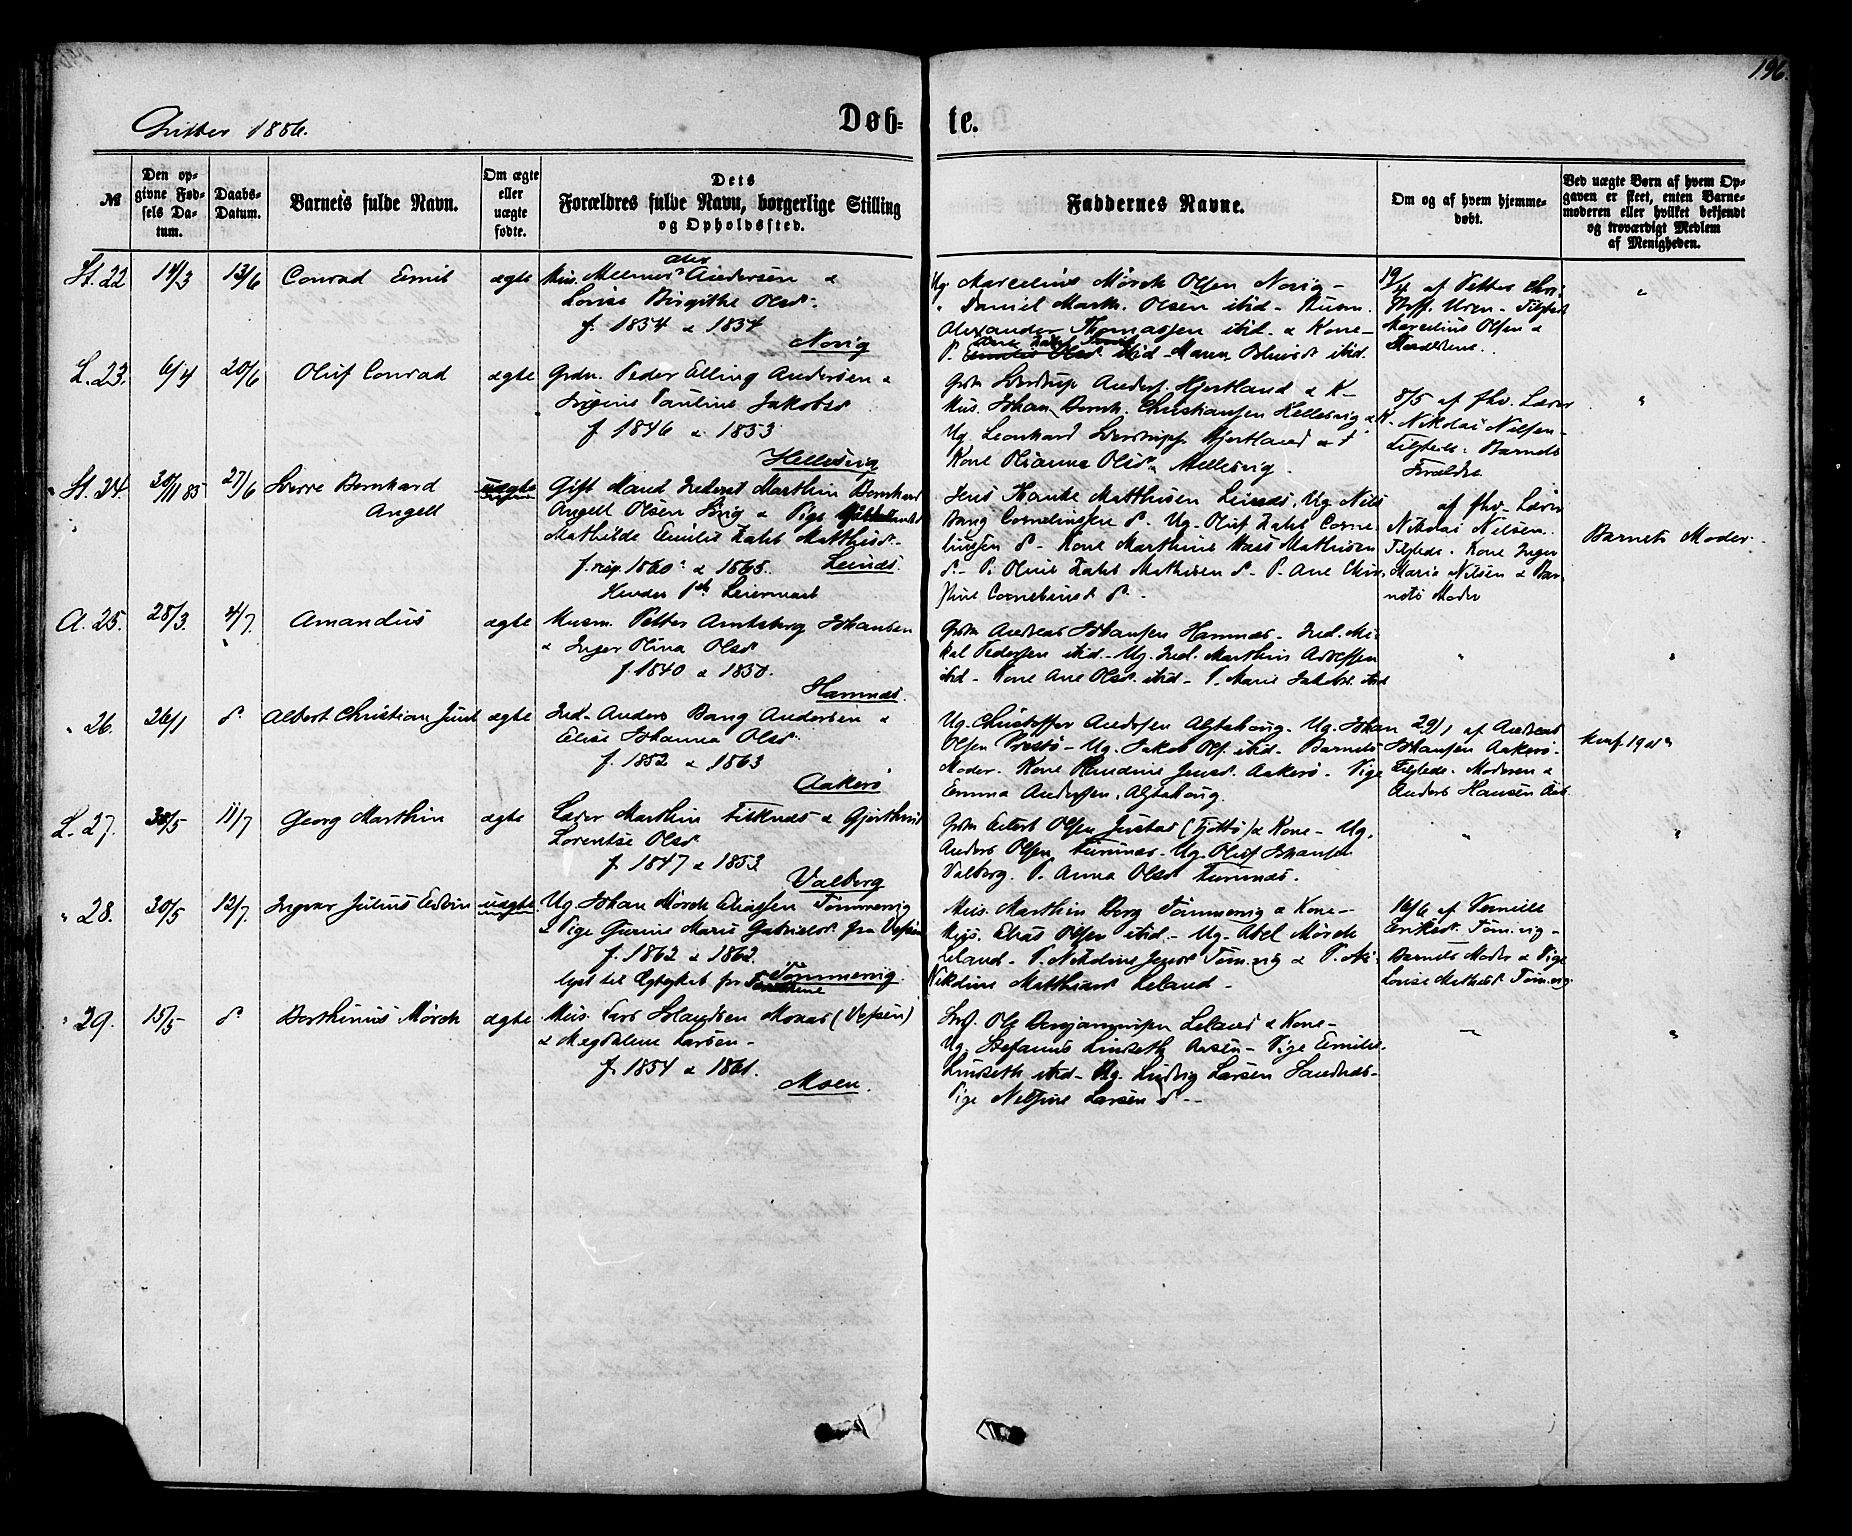 196.
1886.
Døb- te.
№
Den op-
givne Fød-
sels Da-
tum.
Daabs-
Datum.
Barnets fulde Navn.
Om ægte
eller
uægte
fødte.
Dets
Forældres fulde Navn, borgerlige Stilling
og Opholdssted.
Faddernes Navne.
Om og af hvem hjemme-
døbt.
Ved uægte Børn af hvem Op-
gaven er skeet, enten Barne-
moderen eller hvilket bekjendt
og troværdigt Medlem
af Menigheden.
St. 22 14/3 13/6 Conrad Emil ægte Hus. Andersen &
Lovise Birgithe Olsd.
f. 1854 & 1854
Novig
Ug. Marcelius Mørch Olsen Novig -
" Daniel Marth. Olsen ibid - Husm.
Alexander Thomassen ibid. & Kone -
P. Olsd ibid - Maren ibid.
19/4 af Petter Chri-
stoff. Uren - Tilstede
Marcelius Olsen &
Forældrene.
"
L. 23. 6/4 20/6 Oluf Conrad ægte Grdm. Peder Elling Andersen &
Pauline Jakobsd
f. 1846 & 1853
Hellesvig
Anders. Hjertland & K -
Hus. Johan Bernh. Christiansen Hellesvig &
Ug. Leonhard Hjertland & f
Kone Olianna Olsd Hellesvig.
8/5 af fhv. Lærer
N. Nikolai Nilsen -
Tilstede: Barnets
Forældre
"
St. 24. 20/11 85 27/6 Sverre Bernhard
Angell
uægte
Gift Mand Inderst Marthin Bernhard
Angell Olsen & Pige
Mathilde Emilie Matthisd -
f. resp. 1860 & 1865. Leinæs.
Hendes 1ste Leiermaal
Jens Hanke Matthisen Leinæs, Ug. Nils
Bang Cornelinssen S. Ug. Oluf Corne-
linssen S - Kone Marthine Mathisen
S. - P. Oline Mathisen S - P. Ane Chir-
stine S. -
af fhv. Lærer
Nikolai Nilsen.
Tilstede: Kone Inger
Maria Nilsen & Bar-
nets Moder
Barnets Moder.
A. 25. 28/3. 4/7. Amandus ægte Husm. Petter Amtsberg Johansen
& Inger Olina Olsd
f. 1840 & 1850.
Hamnæs.
Grdm Andreas Johansen Hamnæs - Ind. Mi-
kal Pedersen ibid - Ug. Ind. Marthin
ibid - Kone Ane Olsd. ibid - P. Marie Jakobsd ibid
"
"
" 26. 26/1 S. Albert Christian Juul ægte Ind. Anders Bang Andersen &
Elise Johanna Olsd
f. 1852 & 1863
Aakerø
Ug. Christoffer Andersen Alstahoug. Ug. Johan
Olsen Prestø - Ug. Jakob Ols. ibid - Barnets
Moder. Kone Jensd. Aakerø. Pige
Emma Andersen, Alstahoug.
29/1 af Andreas
Johansen Aakerø.
Tilstede: Moderen &
Anders Hansen
Konf. 1901
L. 27. 30/5 11/7 Georg Marthin ægte Lærer Marthin & Gjerthrud
Lorentse Olsd
f. 1847 & 1853
Valberg
Grdm Olsen Justad (Tjøttø) & Kone - Ug.
Anders Olsen - Ug. Oluf Johansen
Valberg. P. Anna Olsd
"
"
" 28. 30/5 12/7. Ingvar Julius Edvin uægte Ug. Johan Mørch Eliassen Tømmervig
& Pige Marie Gabrielsd. fra Vefsen
f. 1862 & 1862.
lyst til Ægteskab fra Tømmervig.
Hus. Marthin Berg Tømmervig & Kone -
Hus. Elias Olsen ibid. - Ug. Abel Mørch
Leland - P. Nikoline Jensd Tømvig & P.
Nikoline Matthiasd Leland -
16/6 af Pernille
Eriksd. Tømvig -
Barnets Moder & Pige
Louise Tømvig
" 29. 15/5 S. Berthinus Mørch ægte Hus. Lars Moxnæs (Vefsen)
& Magdalene Larsen -
f. 1854 & 1861.
Moen.
Ole Benjaminsen Leland & Kone -
Ug. Stefanus Lindseth - Pige Emilie
Lindseth ibid - Ug. Ludvig Larsen Sandnæs -
Pige Larsen S -
"
"